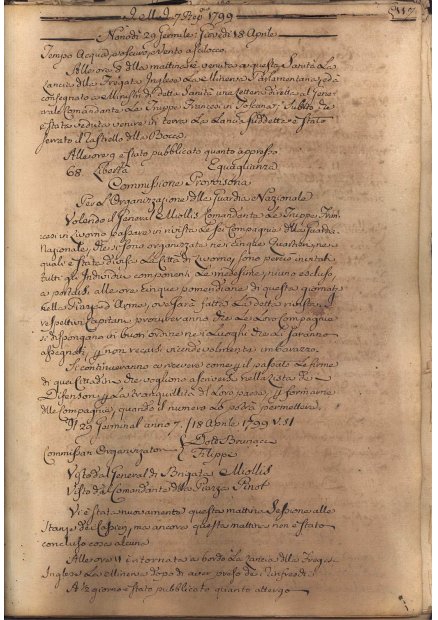 1799
Nonodì 29 Germile: Giovedì 18 Aprile
Tempo Acqua, oscuro, e Vento a scilocco.
Alle ore 8 della mattina è venuta a questa Sanità La
Lancia della Fregata Inglese La Minerva Parlamentaria, ed à
consegnato a Ministri di detta Sanità una Lettera diretta al Gene-
rale Comandante Le Truppe Francesi in Toscana; Subito che
è Stata veduta venire in terra La Lancia suddetta è Stato
serrato il Rastrello della Bocca.
Alle ore 9 è Stato pubblicato quanto appresso
68. Libertà Eguaglianza
Commissione Provisoria
Per L'Organizzazione della Guardia Nazionale
Volendo il General Miollis Comandante Le Truppe Fran-
cesi in Livorno passare in rivista Le Sei Compagnie della Guardia
Nazionale, che si sono organizzate nei cinque Quartieri, ne
quali è Stata divisa La Città di Livorno, sono perciò invitati
tutti gli Individui componenti Le medesime, niuno escluso,
a portarsi alle ore cinque pomeridiane di questa giornata
nella Piazza d'Arme, ove sarà fatta La detta rivista, i
respettivi Capitani procureranno che Le Loro Compagnie
si dispongano in buon ordine nei Luoghi che Li saranno
assegnati, p. non recarsi vicendevolmente imbarazzo.
Si continueranno a ricevere come p. il passato Le firme
di quei Cittadini che vogliono ascriversi nella Lista dei
Difensori p. La tranquillità del Loro paese, p. formarne
delle Compagnie, quando il numero Lo potrà permettere.
Dì 29 Germinal anno 7. [18 Aprile 1799 V.S]
Commissari Organizzatori Dott. Brunacci
Filippi
Visto dal General di Brigata Miollis
Visto dal Comandante della Piazza Pinot
Vi è Stata nuovamente questa mattina Sessione alle
Stanze dei ma ancora questa mattina non è Stato
concluso cosa alcuna
Alle ore 11 è ritornata a bordo La Lancia della Frega-
Inglese La Minerva dopo di aver preso dei Rinfreschi
A ½ giorno è Stato pubblicato quanto attergo